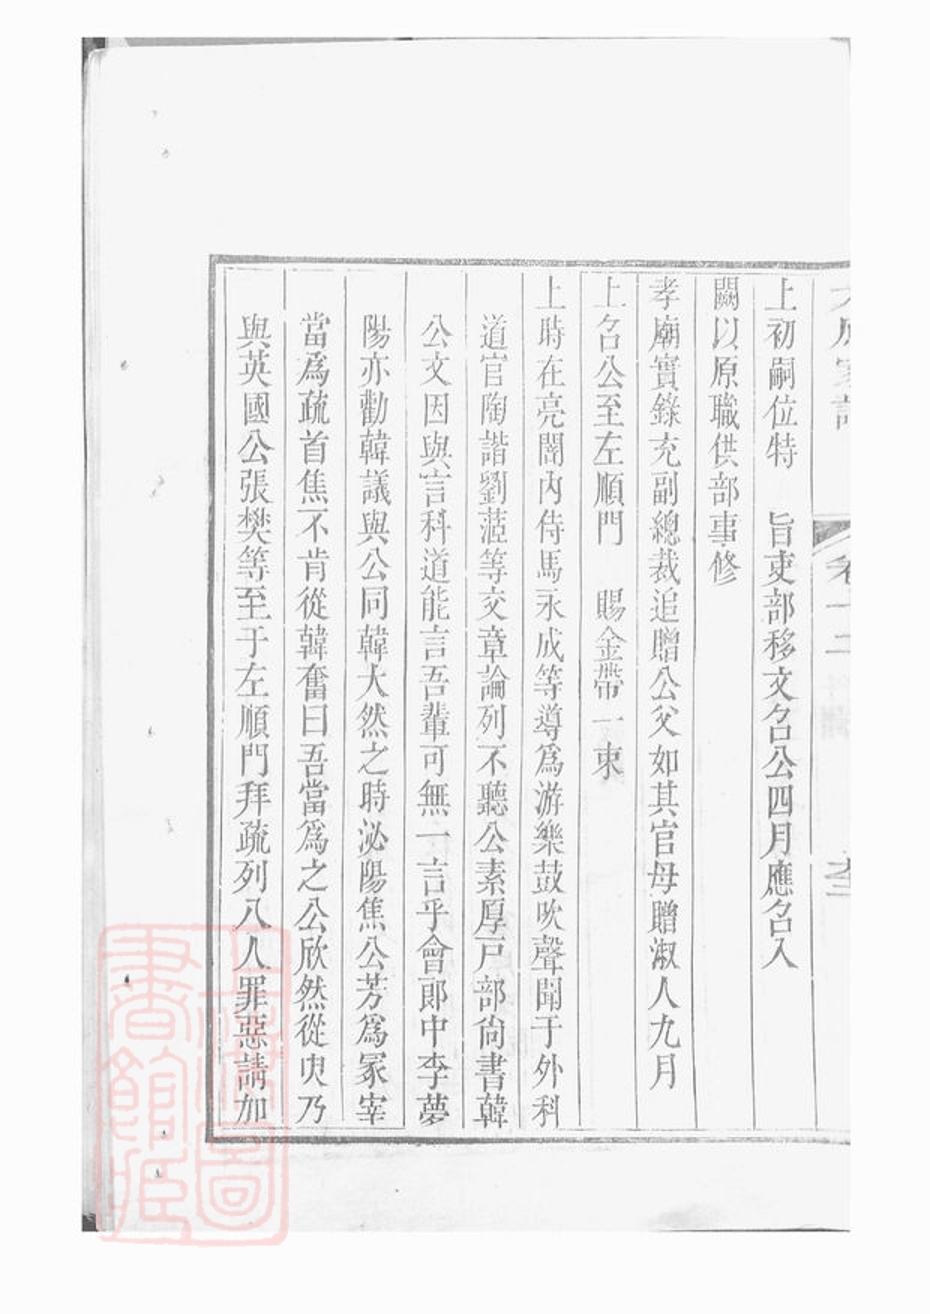 卷十二
上初嗣位特 旨吏部移文召公四月應召入
闕以原職供部事修
孝廟實錄充副總裁追贈公父如其官母贈淑人九月
上召公至左順門 賜金帶一束
上時在亮闇內侍馬永成等導爲游樂鼓吹聲聞于外科
道官陶諧劉菃等交章論列不聽公素厚戸部尙書韓
公文因與言科道能言吾輩可無一言乎會郎中李夢
陽亦勸韓議與公同韓大然之時泌陽焦公芳爲冢宰
當爲疏首焦不肯從韓奮曰吾當爲之公欣然從臾乃
與英國公張樊等至于左順門拜疏列八人罪惡請加